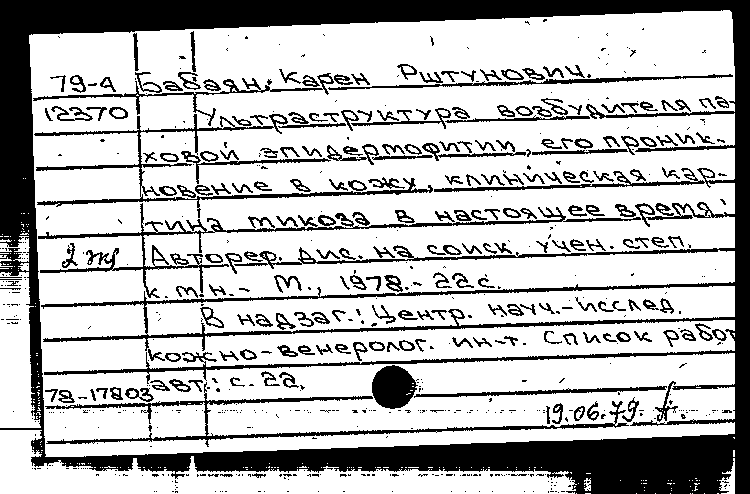 79-4 Бабаян, Карен Рштунович.
12370 Ультраструктура возбудителя па-
ховой эпидермофитии, его проник-
новение в кожу, клиническая кар-
тина микоза в настоящее время:
2 экз Автореф. дис. на соиск. учен. степ.
к. м. н. - М., 1978. - 22 с.
В надзаг.: Центр. науч.-исслед.
кожно-венеролог. ин-т. Список работ
78-17803 авт.: с. 22.
19.06.79. А.